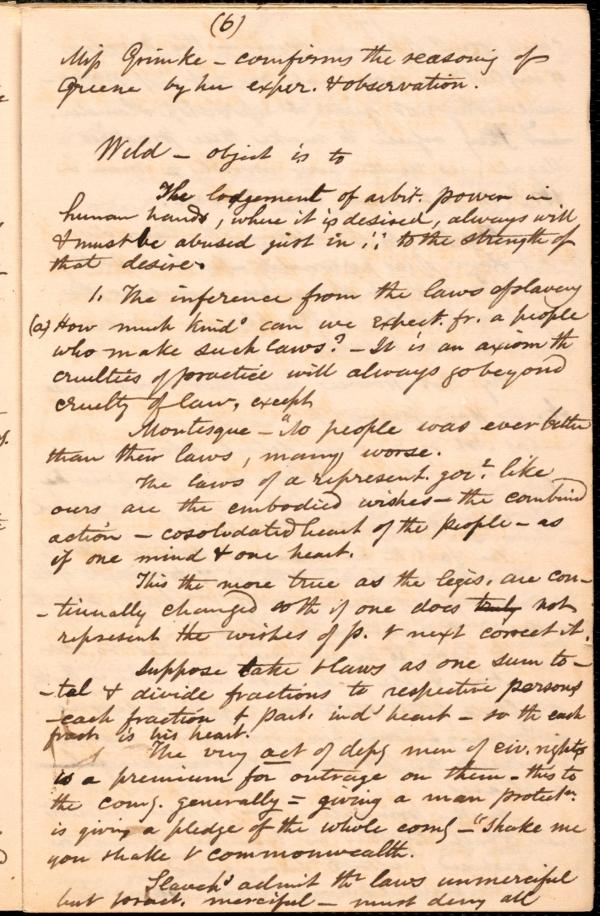 (6)
Miss Grimke - comfirms the reasoning of
Greene by her exper. & observation.
Weld - object is to
The lodgement of arbit. power in
human hands, where it is desired, always will
& must be abused just in :: to the strength of
that desire.
1. The inference from the laws of slavery
(a) How much kinds can we expect. fr. a people
who make such laws? - It is an axiom th
cruelties of practice will always go beyond
cruelty of law, except
Montesque - "No people was ever better
than their laws, many worse."
The laws of a represent. govt. like
ours are the embodied wishes - the combind
action - cosolodated heart of the people - as
if one mind & one heart.
This the more true as the legis. are con-
-tinually changed so th if one does truly not
represent the wishes of p. & next correct it.
Suppose take & laws as one sum to-
-tal & divide fractions to respective persons
- each fraction & part. ind' heart - so th each
fract. is his heart.
The very act of depg men of civ. rights
is a premium for outrage on them - this to
the comy. generally = giving a man protectn.
is giving a pledge of the whole comy - "Shake me
you shake & commonwealth.
Slaveh' admit th laws unmerciful
but pract. merciful - must deny all